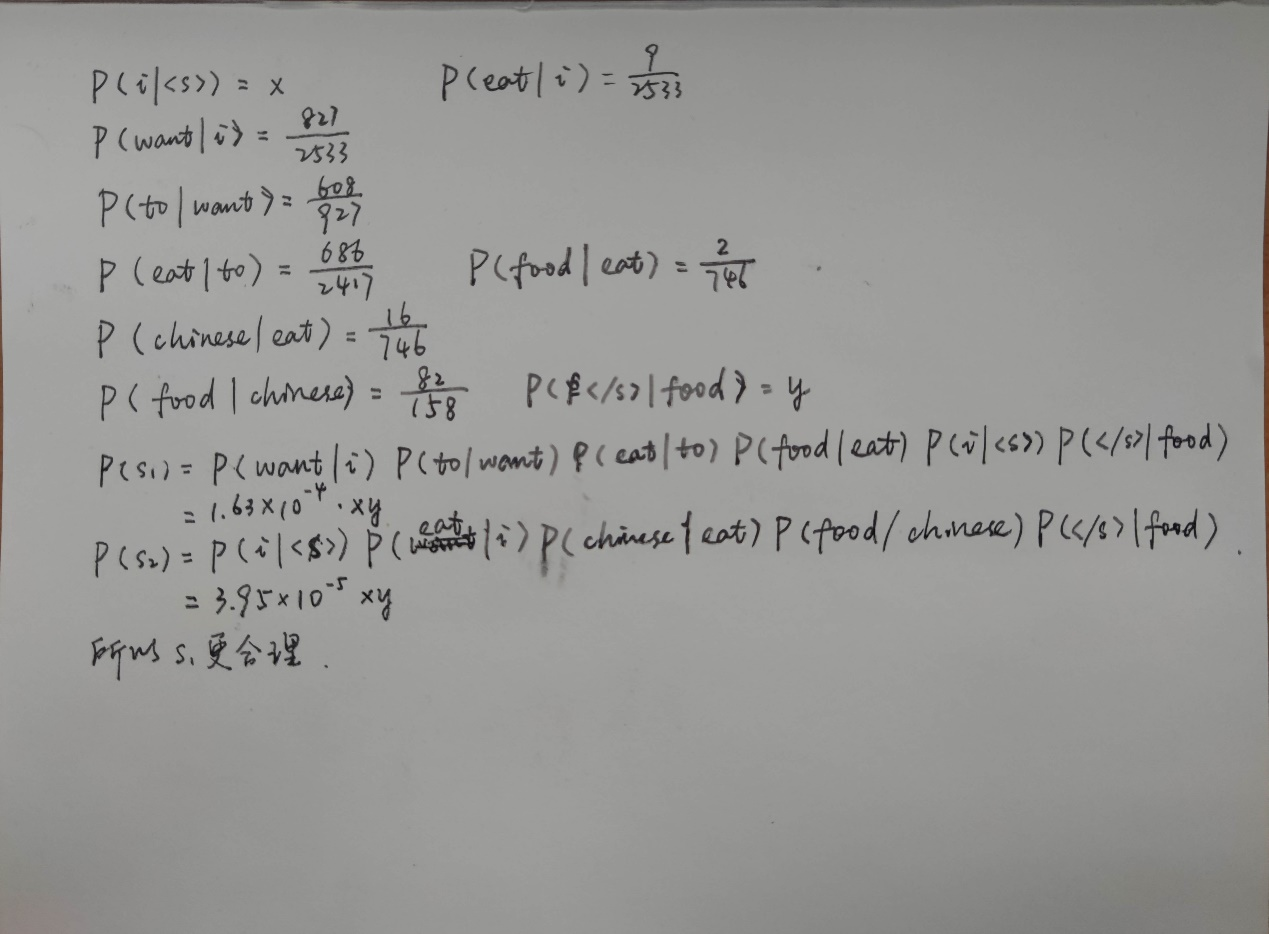 P(i|<s>) = x P(eat|i) = 9/2533
P(want|i) = 827/2533
P(to|want) = 608/927
P(eat|to) = 686/2417 P(food|eat) = 2/746
P(chinese|eat) = 16/746
P(food|chinese) = 82/158 P(</s>|food) = y
P(s₁) = P(want|i) P(to|want) P(eat|to) P(food|eat) P(i|<s>) P(</s>|food)
= 1.63×10⁻⁴·xy
P(s₂) = P(i|<s>) P(eat|i) P(chinese|eat) P(food/chinese) P(</s>|food).
= 3.95×10⁻⁵ xy
所以 s₁ 更合理.